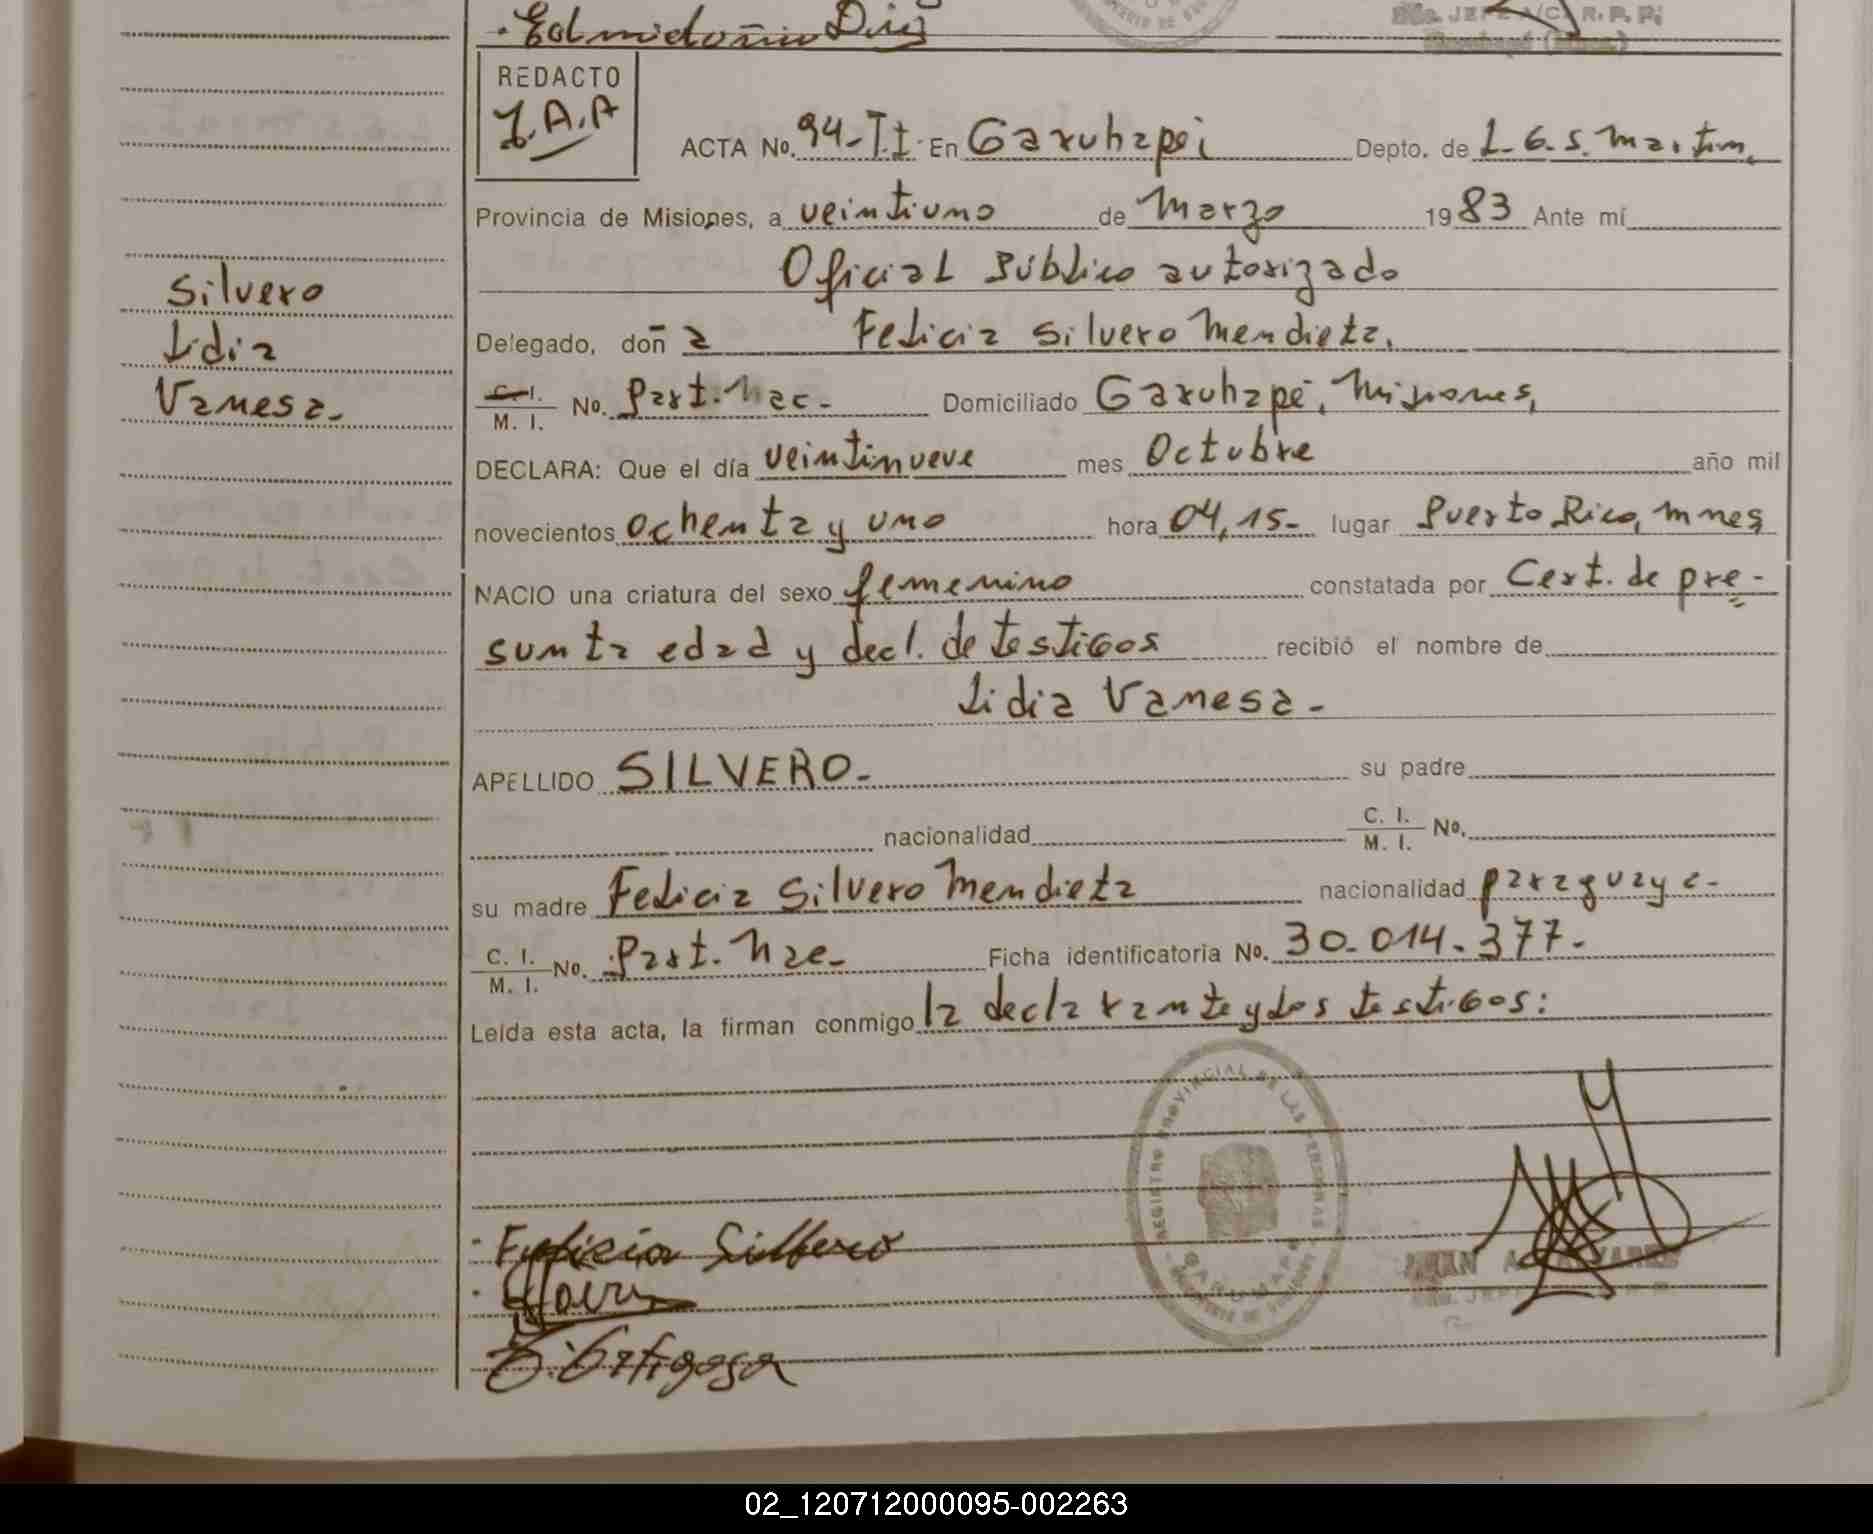 Diaz
JEFE A/C. R. P. P.
REDACTO
J.A.A
ACTA No. 94-T.I. En Garuhapei Depto. de L.G.S. Martin,
Provincia de Misiones, a veintiuno de Marzo 1983 Ante mí
Oficial Público autorizado
Silvero
Lidia
Vanesa.-
Delegado, doñ a Felicia Silvero Mendieta,
C. I.
M. I. No. Part. Nac.- Domiciliado Garuhapé, Misiones,
DECLARA: Que el día veintinueve mes Octubre año mil
novecientos ochenta y uno hora 04,15- lugar Puerto Rico, Mnes
NACIO una criatura del sexo femenino constatada por Cert. de pre-
sunta edad y decl. de testigos recibió el nombre de
Lidia Vanesa.-
APELLIDO SILVERO.- su padre
nacionalidad C. I.
M. I. No.
su madre Felicia Silvero Mendieta nacionalidad paraguaya.-
C. I.
M. I. No. Part. Nac.- Ficha identificatoria No. 30.014.377.-
Leída esta acta, la firman conmigo la declarante y los testigos:
REGISTRO PROVINCIAL DE LAS PERSONAS
Felicia Silbero
JUAN A. ALVAREZ
02_120712000095-002263